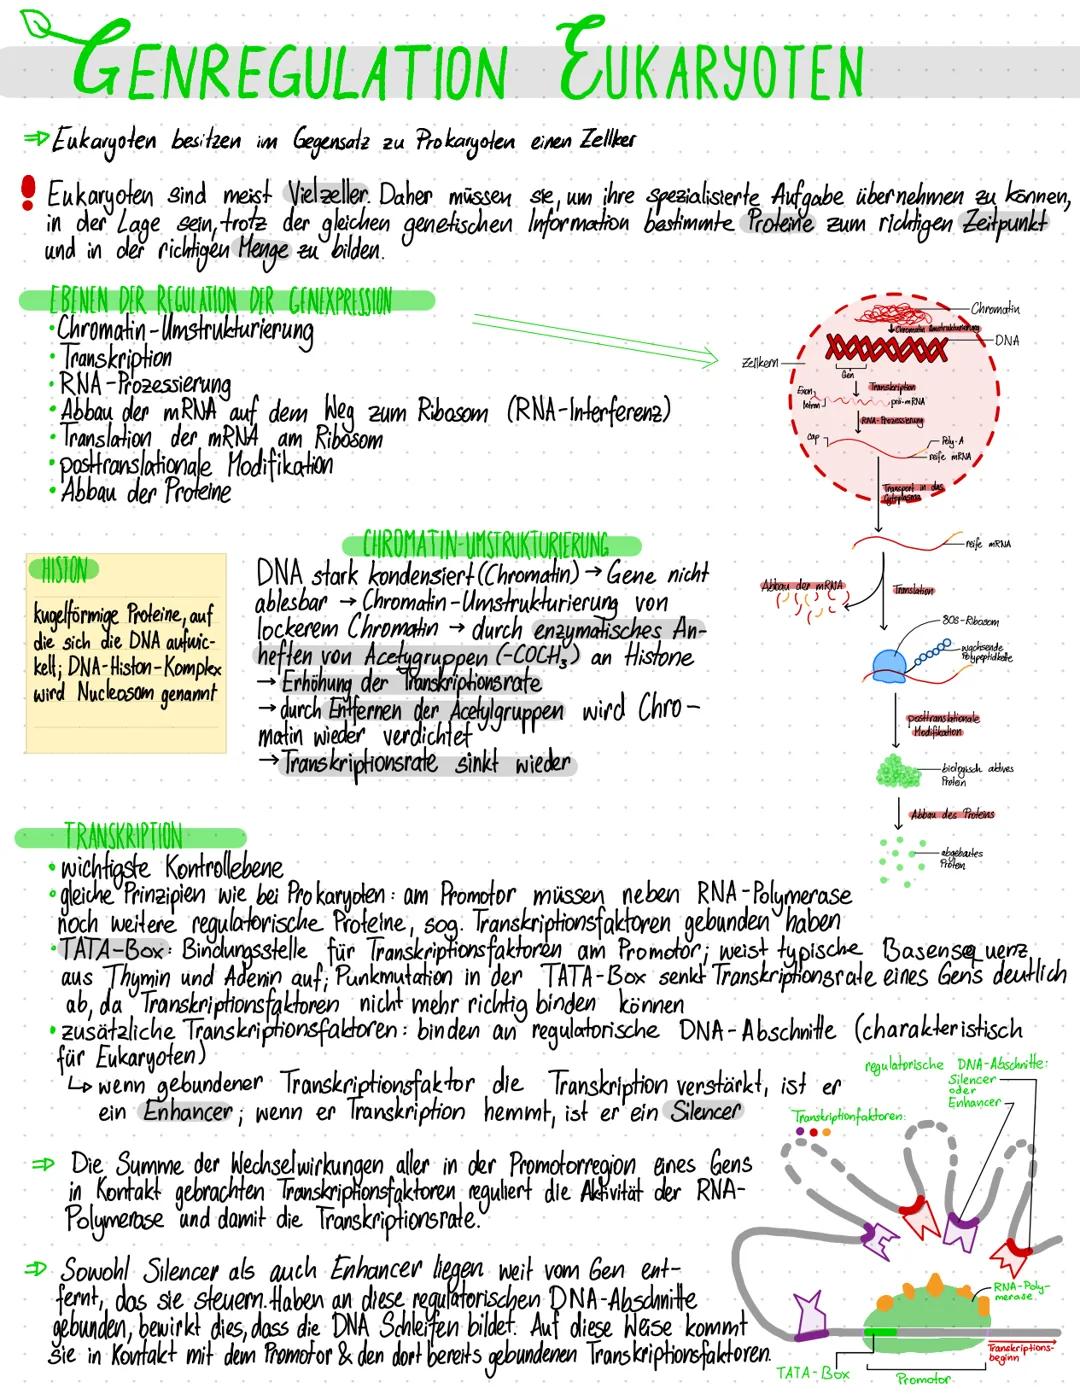 GENREGULATION EUKARYOTEN
⇒ Eukaryoten besitzen im Gegensatz zu Prokaryoten einen Zellker
! Eukaryoten sind meist Vielzeller. Daher müssen sie, um ihre spezialisierte Aufgabe übernehmen zu können,
in der Lage sein, trotz der gleichen genetischen Information bestimmte Proteine zum richtigen Zeitpunkt
und in der richtigen Menge zu bilden.
EBENEN DER REGULATION DER GENEXPRESSION
• Chromatin-Umstrukturierung
• Transkription
• RNA-Prozessierung
• Abbau der mRNA auf dem Weg zum Ribosom (RNA-Interferenz)
• Translation der mRNA am Ribosom
• posttranslationale Modifikation
• Abbau der Proteine
Chromatin
Chromatin Umstrukturierung
DNA
Zellkern
Gen
Transkription
Exon
Intron
prä-mRNA
RNA-Prozessierung
Cap
Poly-A
reife mRNA
Transport in das
Cytoplasma
reife mRNA
Abbau der mRNA
Translation
80S-Ribosom
wachsende
Polypeptidkette
posttranslationale
Modifikation
biologisch aktives
Protein
Abbau des Proteins
abgebautes
Protein
HISTON
kugelförmige Proteine, auf
die sich die DNA aufwic-
kelt; DNA-Histon-Komplex
wird Nucleosom genannt
CHROMATIN-UMSTRUKTURIERUNG
DNA stark kondensiert (Chromatin) → Gene nicht
ablesbar → Chromatin-Umstrukturierung von
lockerem Chromatin → durch enzymatisches An-
heften von Acetygruppen (-COCH₃) an Histone
→ Erhöhung der Transkriptionsrate
→ durch Entfernen der Acetylgruppen wird Chro-
matin wieder verdichtet
→ Transkriptionsrate sinkt wieder
TRANSKRIPTION
• wichtigste Kontrollebene
• gleiche Prinzipien wie bei Prokaryoten: am Promotor müssen neben RNA-Polymerase
noch weitere regulatorische Proteine, sog. Transkriptionsfaktoren gebunden haben
• TATA-Box: Bindungsstelle für Transkriptionsfaktoren am Promotor; weist typische Basensequenz
aus Thymin und Adenin auf; Punkmutation in der TATA-Box senkt Transkriptionsrate eines Gens deutlich
ab, da Transkriptionsfaktoren nicht mehr richtig binden können
• zusätzliche Transkriptionsfaktoren: binden an regulatorische DNA-Abschnitte (charakteristisch
für Eukaryoten)
↳ wenn gebundener Transkriptionsfaktor die Transkription verstärkt, ist er
ein Enhancer; wenn er Transkription hemmt, ist er ein Silencer
⇒ Die Summe der Wechselwirkungen aller in der Promotorregion eines Gens
in Kontakt gebrachten Transkriptionsfaktoren reguliert die Aktivität der RNA-
Polymerase und damit die Transkriptionsrate.
⇒ Sowohl Silencer als auch Enhancer liegen weit vom Gen ent-
fernt, das sie steuern. Haben an diese regulatorischen DNA-Abschnitte
gebunden, bewirkt dies, dass die DNA Schleifen bildet. Auf diese Weise kommt
sie in Kontakt mit dem Promotor & den dort bereits gebundenen Transkriptionsfaktoren.
regulatorische DNA-Abschnitte:
Silencer
oder
Enhancer
Transkriptionfaktoren:
RNA-Poly-
merase
Transkriptions-
beginn
TATA-Box
Promotor